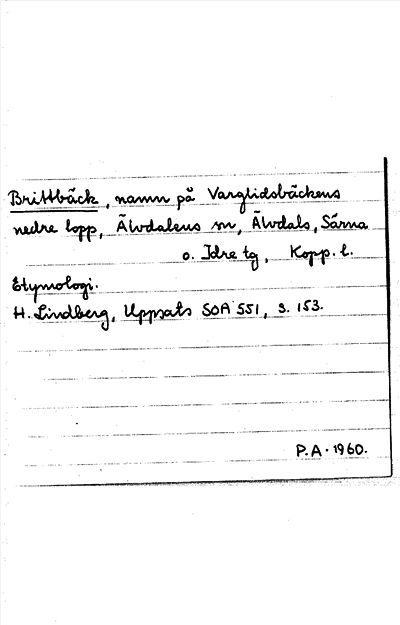 Brittbäck, namn på Varglidsbäckens
nedre lopp, Älvdalens sn, Älvdals, Särna
o. Idre tg, Kopp. l.
Etymologi.
H. Lindberg, Uppsats SOA 551, s. 153.
P.A. 1960.